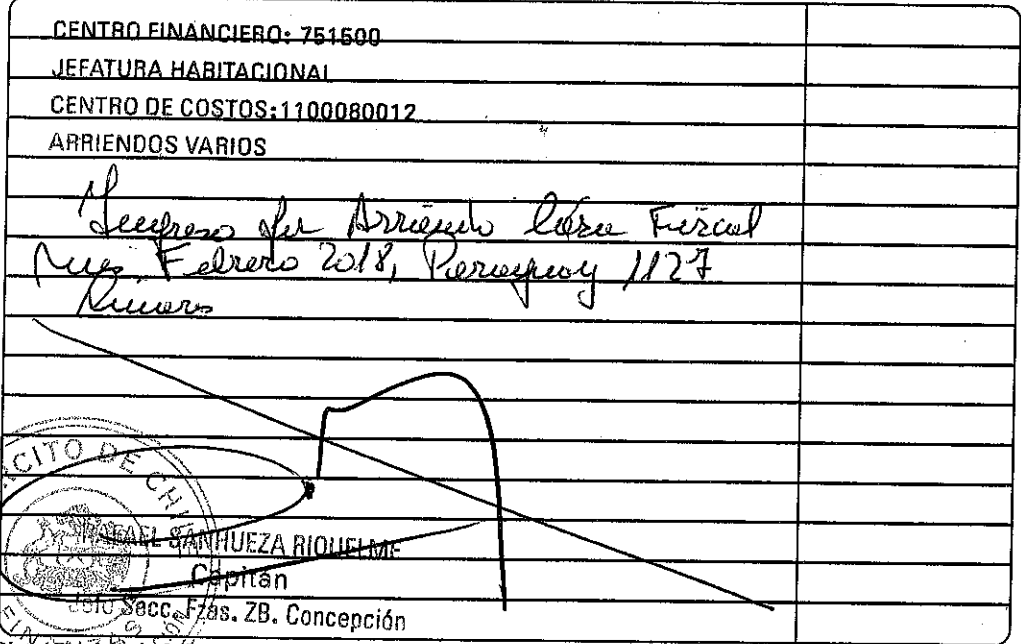 CENTRO FINANCIERO: 751500
JEFATURA HABITACIONAL
CENTRO DE COSTOS:1100080012
ARRIENDOS VARIOS
Ingreso por Arriendo Casa Fiscal
Mes Febrero 2018, Paraguay 1127
Linares
CITO DE CHI
RAFAEL SANHUEZA RIQUELME
Capitán
Jefe Secc. Fzas. ZB. Concepción